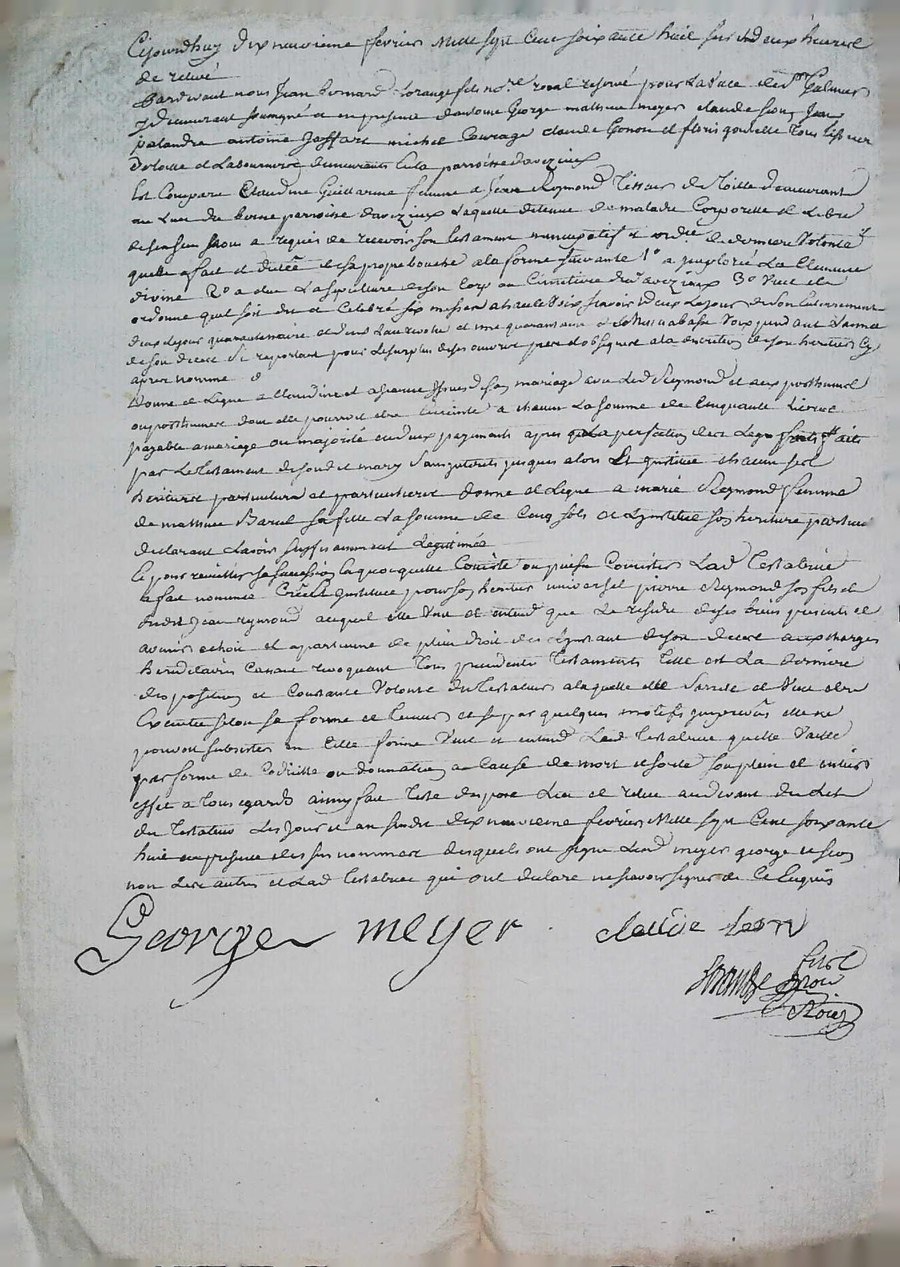 Cejourdhuy dix neuvieme fevrier Mille sept Cent soixante huit sur les deux heures
de relevé
Pardevant nous Jean Bernard Lorange fils no.re royal reservé pour la ville de St Galmier
y demeurant soussigné et en presence d'antoine George mathieu meyer claude seon Jean
palandre antoine Jaffart michel Courage claude Gonon et floris gouvelle Tous
et Laboureurs demeurants en la parroisse daveizieux
Est Comparu Claudine Guillarme femme a Jean Reymond Tisseur de Toille demeurant
au Lieu du parroisse daveizieux Laquelle detenue de maladie Corporelle et Libre
de ses sens Nous a requis de recevoir son testament nuncupatif et ord.re de derniere Volonté
quelle a fait et dicté de sa propre bouche a la forme suivante 1° a imploré La Clemence
divine 2° a elue La sepulture de son Corp au Cimetiere dud. aveizieux 3° Veut et
ordonne quil soit dit et Celebré six messes a Scavoir deux Le jour de son Enterrement
deux le jour quarantainaire et deux Lan revolu et une quarantaine a voix pendant L'année
de son deces Se reportant pour Le surplus de ses œuvres pies et obseques a la discretion de son heritier Cy
apres nommé
Donne et Legue a Claudine et a Jeanne Issues de son mariage avec Led. Reymond et aux posthumes
ou posthume dont elle pourroit etre Enceinte a chacun La somme de Cinquante Livres
payable a mariage ou majorité en deux payements apres la perfection des Legs faits
par Le testament de son dit mary Sans interets jusques alors Et institue chacun ses
heritiers particuliers et particulieres donne et Legue a marie Reymond femme
de mathieu Barul sa fille La somme de Cinq sols et L'institue son heritiere particu
declarant L'avoir suffisamment Legitimée
Et pour recueillir sa succession En quoy quelle Consiste ou puisse Consister Lad. Testatrice
a fait nommé Créé et institue pour son heritier universel pierre Reymond son fils et
dudit Jean reymond auquel elle Veut et entend que Le residu de ses biens presents et
avenirs echoit et apartienne de plein droit des Linstant de son deces aux charges
hereditaires Cassant revoquant Tous precedents Testaments Cette est La derniere
disposition et Constante Volonté du Testateur a laquelle elle Sarrete et Veut etre
Executée selon sa forme et teneur et si par quelques motifs imprevûs elle ne
pouvoit subsister en Cette forme Veut et entend Lad Testatrice quelle Vaille
par forme de Codicille ou donnation a Cause de mort et sorte son plein et entier
effet a tous egards ainsy fait Testé disposé Leu et releu audevant du Lit
du Testateur Les Jour et an susdit dix neuvieme fevrier Mille sept Cent soixante
huit en presence des sus nommés desquels ont signé Led. meyer george et seon
non Les autres et Lad. testatrice qui ont declaré ne scavoir signer de Ce Enquis
George meyer claude seon